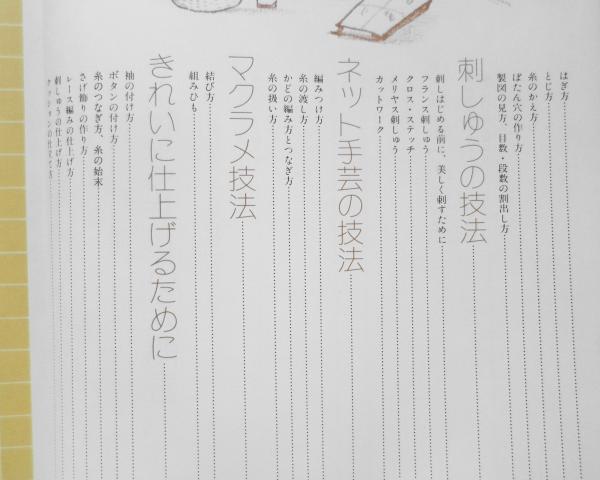 はぎ方
とじ方
糸のかえ方
ぼたん穴の作り方
製図の見方、目数・段数の割出し方
刺しゅうの技法
刺しはじめる前に、美しく刺すために
フランス刺しゅう
クロス・ステッチ
メリヤス刺しゅう
カットワーク
ネット手芸の技法
編みつけ方
糸の渡し方
かどの編み方とつなぎ方
糸の扱い方
マクラメ技法
結び方
組みひも
きれいに仕上げるために
袖の付け方
ボタンの付け方
糸のつなぎ方、糸の始末
さげ飾りの作り方
レース編みの仕上げ方
刺しゅうの仕上げ方
クッションの仕立て方